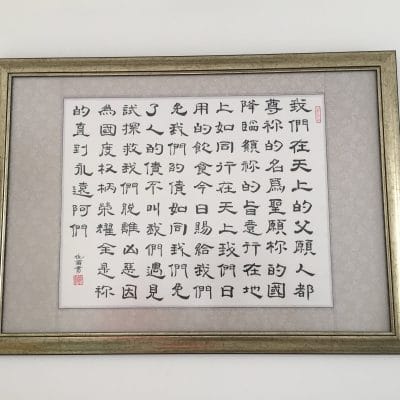 我們在天上的父願人都
尊祢的名爲聖願祢的國
降臨願祢的旨意行在地
上如同行在天上我們日
用的飲食今日賜給我們
免我們的債如同我們免
了人的債不叫我們遇見
試探救我們脫離凶惡因
為國度权柄榮耀全是祢
的直到永遠阿們
書